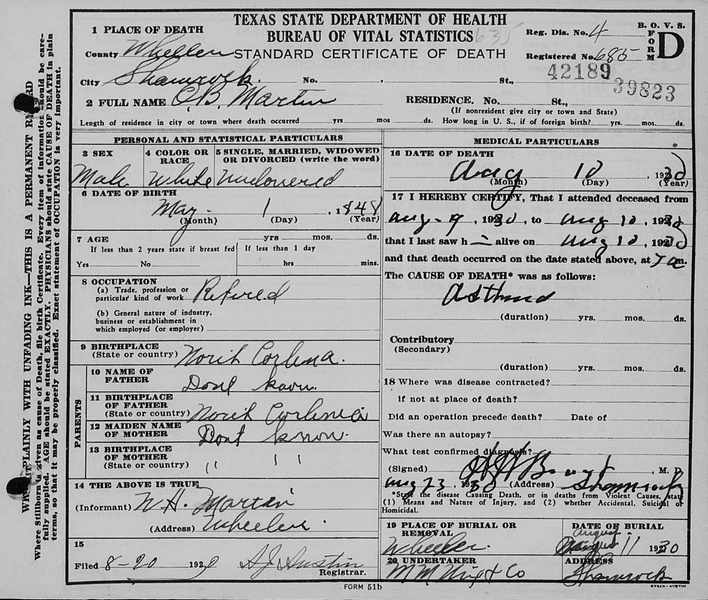 TEXAS STATE DEPARTMENT OF HEALTH
BUREAU OF VITAL STATISTICS
STANDARD CERTIFICATE OF DEATH
635
Reg. Dis. No. 4
Registered No. 685
B. O. V. S.
FORM D
42189
39823
1 PLACE OF DEATH
County Wheeler
City Shamrock No. St.,
2 FULL NAME O.B. Martin RESIDENCE. No. St.,
(If nonresident give city or town and State)
Length of residence in city or town where death occurred yrs mos ds. How long in U. S., if of foreign birth? yrs. mos. ds.
PERSONAL AND STATISTICAL PARTICULARS
3 SEX 4 COLOR OR RACE 5 SINGLE, MARRIED, WIDOWED OR DIVORCED (write the word)
Male White Widowered
6 DATE OF BIRTH
May 1 1848
(Month) (Day) (Year)
7 AGE yrs. mos. ds.
If less than 2 years state if breast fed If less than 1 day
Yes No hrs. min.
8 OCCUPATION
(a) Trade, profession or particular kind of work Retired
(b) General nature of industry, business or establishment in which employed (or employer)
9 BIRTHPLACE
(State or country) North Corlina
PARENTS
10 NAME OF FATHER Dont know
11 BIRTHPLACE OF FATHER
(State or country) North Corlinea
12 MAIDEN NAME OF MOTHER Dont know
13 BIRTHPLACE OF MOTHER
(State or country) " "
14 THE ABOVE IS TRUE
(Informant) W.H. Martin
(Address) Wheeler
15
Filed 8-20 1930 S.J. Austin
Registrar.
MEDICAL PARTICULARS
16 DATE OF DEATH
Aug 10 1930
(Month) (Day) (Year)
17 I HEREBY CERTIFY, That I attended deceased from
Aug-9 1930, to Aug 10, 1930
that I last saw h alive on Aug 10, 1930
and that death occurred on the date stated above, at 7 a m.
The CAUSE OF DEATH* was as follows:
Asthma
(duration) yrs. mos. ds.
Contributory
(Secondary)
(duration) yrs. mos. ds.
18 Where was disease contracted?
if not at place of death?
Did an operation precede death? Date of
Was there an autopsy?
What test confirmed diagnosis?
(Signed) M. D.
Aug 23 1930 (Address) Shamrock
*State the disease Causing Death, or in deaths from Violent Causes, state
(1) Means and Nature of Injury, and (2) whether Accidental, Suicidal or
Homicidal.
19 PLACE OF BURIAL OR REMOVAL DATE OF BURIAL
Wheeler August 11 1930
20 UNDERTAKER ADDRESS
Co Shamrock
FORM 51b
WRITE PLAINLY WITH UNFADING INK—THIS IS A PERMANENT RECORD
Where Stillborn is given as cause of Death, file birth Certificate. Every item of information should be carefully supplied. AGE should be stated EXACTLY. PHYSICIANS should state CAUSE OF DEATH in plain terms, so that it may be properly classified. Exact statement of OCCUPATION is very important.